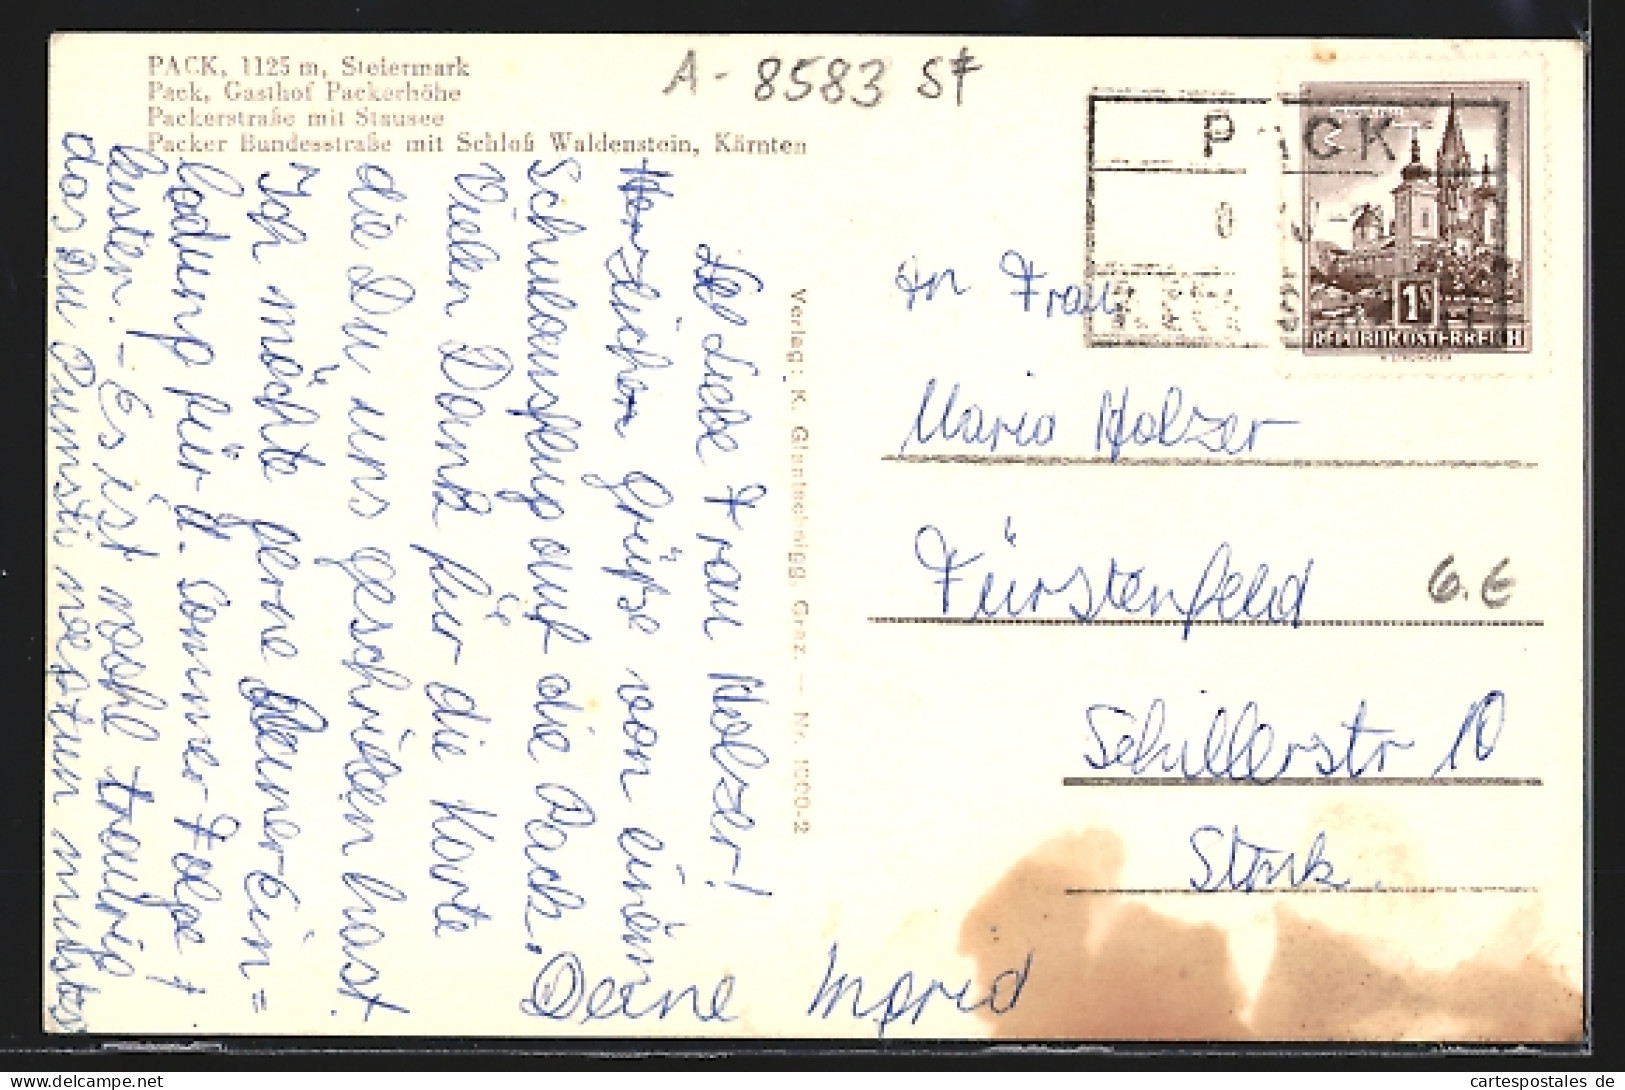 PACK, 1125 m, Steiermark
Pack, Gasthof Packerhöhe
Packerstraße mit Stausee
Packer Bundesstraße mit Schloß Waldenstein, Kärnten
A-8583 St
PACK
1S
REPUBLIK ÖSTERREICH
Liebe Frau Holzer!
Herzlichen Grüße von einem
Schulausflug auf die Pack.
Vielen Dank für die Karte
die Du uns geschrieben hast.
Ich möchte gerne Deiner Ein=
ladung für d. Sommer Folge
leisten. – Es ist wohl traurig
das Du Pumsti weg tun mußtest
Deine Ingrid
Verlag: K. Glantschnigg, Graz. — Nr. 1000-2
An Frau
Maria Holzer
Fürstenfeld
6.E
Schillerstr 10
Stmk.
cartespostales de